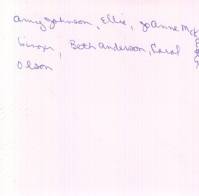 Amy Johnson, Ellie, JoAnne
Beth Anderson, Carol
Olson